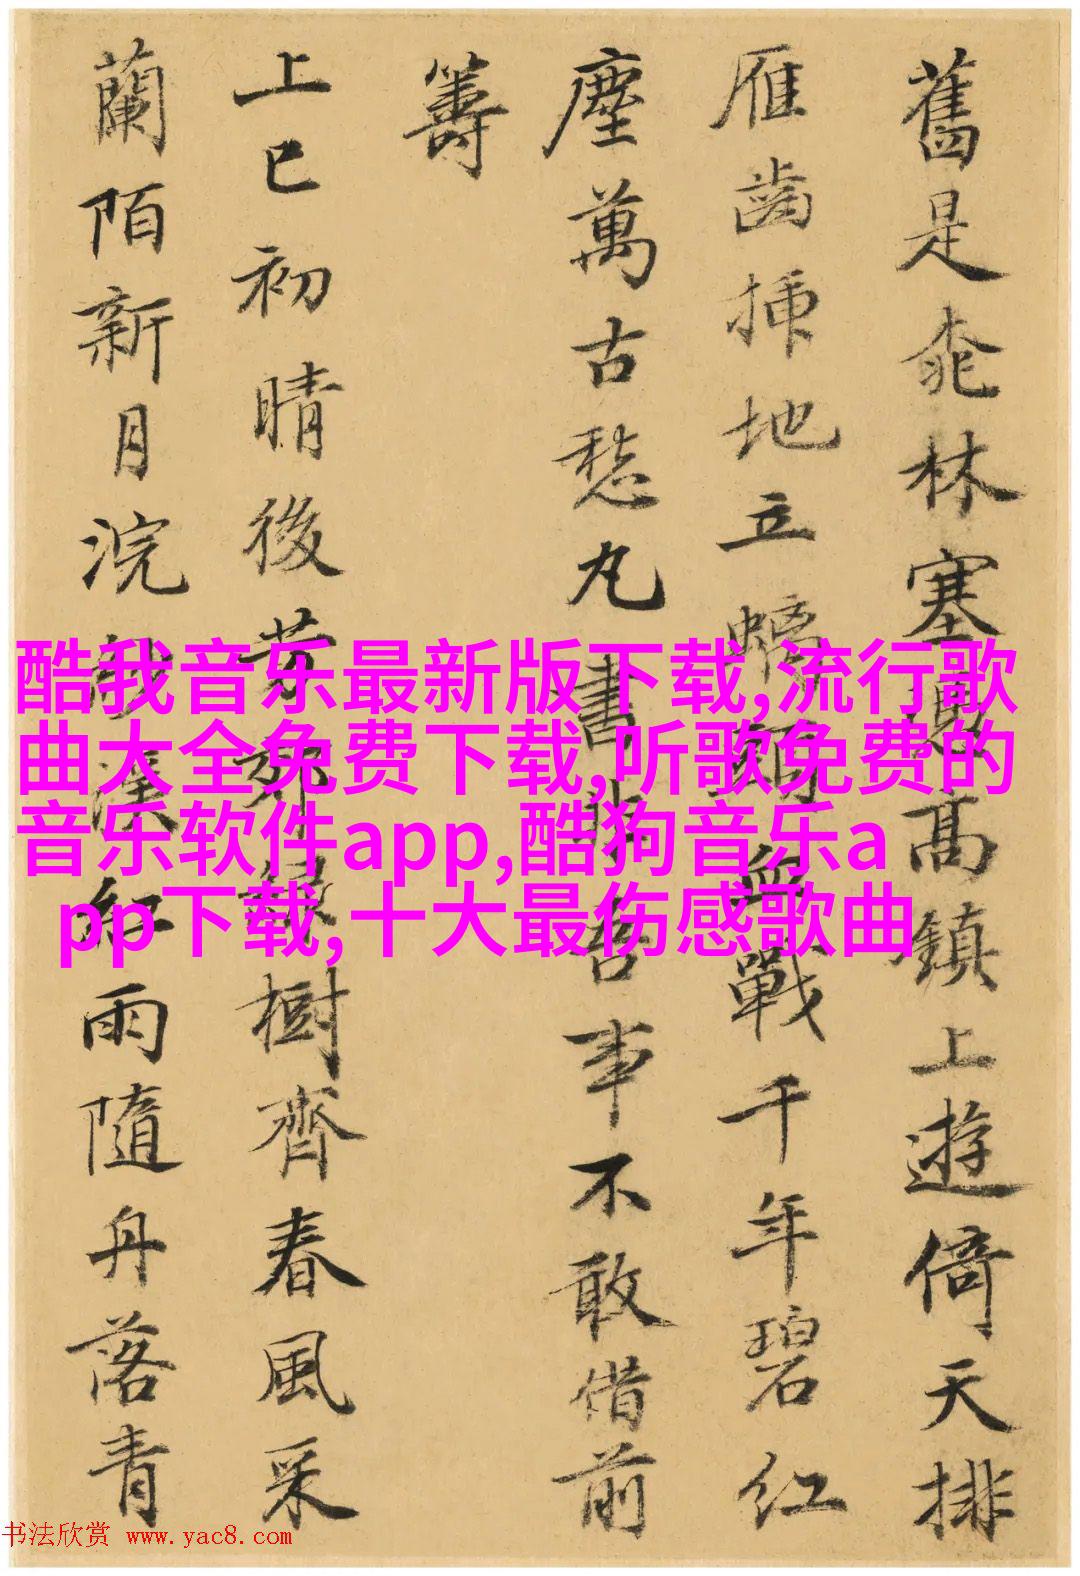 舊是桃林塞高鎮上遊倚天排
雁齒插地立螭頭戰千年碧紅
塵萬古愁丸書非吾事不敢借前
籌
上巳初晴後芳郊綠樹齊春風采
蘭陌新月浣溪紅雨隨舟落青
酷我音乐最新版下载,流行歌
曲大全免费下载,听歌免费的
音乐软件app,酷狗音乐a
pp下载,十大最伤感歌曲
书法欣赏 www.yac8.com